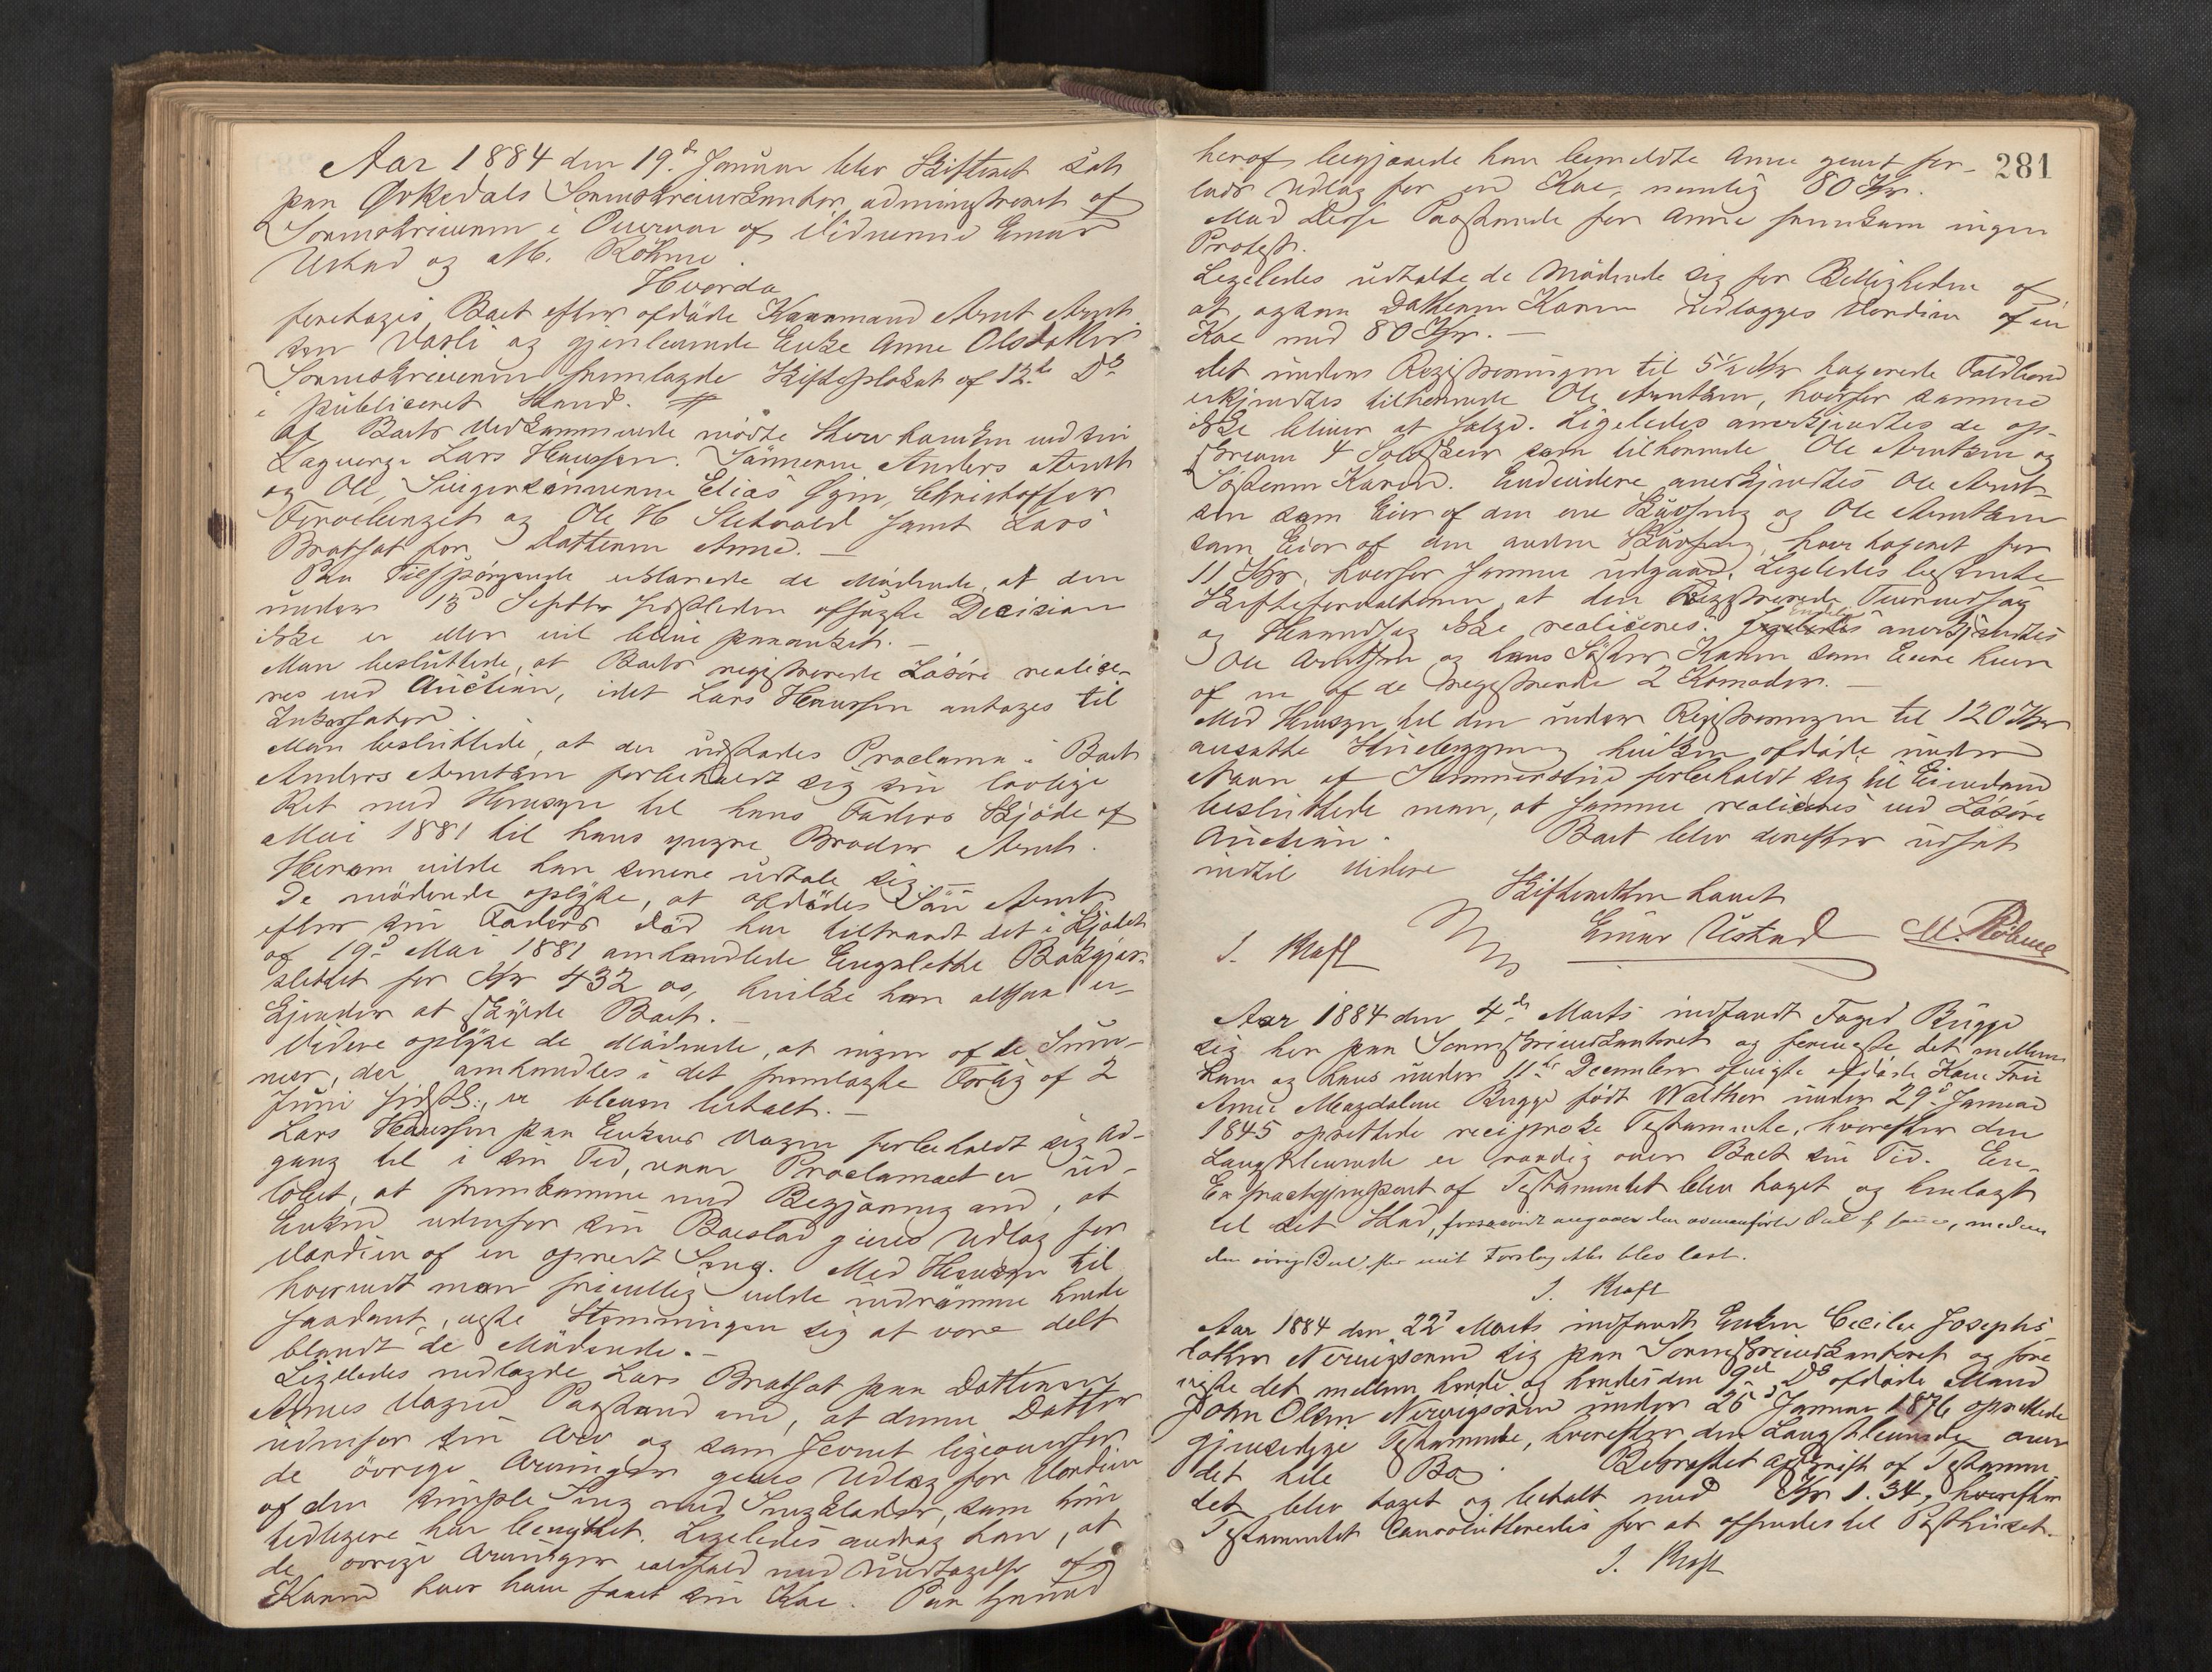 Aar 1884 den 19de Januar blev Skifteret sat
paa Orkedals Sorenskriverkontor, administreret af
Sorenskriveren i Overvær af Vidnerne Einar
Ustad og M. Röhme.
Hvorda
foretoges Boet efter afdöde Kaarmand Arnt Arnt-
sen Vasli og gjenlevende Enke Anne Olsdatter
Sorenskriveren fremlagde Skifteplakat af 12te Ds
i publiceret Stand.
Af Boets Vedkommende mødte Enken med sin
Laugverge Lars Hanssen. Sønnerne Anders Arnts.
og Ole, Svigersönnerne Elias Gjin, Christoffer
og Ole H. Slethvold samt Lars
Bratset for Datteren Anne. —
Paa Tilspörgende erklærede de Mödende, at den
under 13de Septbr sidstleden afsagte Decision
ikke er eller vil blive paaanket. —
Man besluttede, at Boets registrerede Lösöre realise-
res ved Auction, idet Lars Hanssen antages til
Inkassator.
Man besluttede, at der udstædes Proclama i Boet
Anders Arntsen forbeholdt sig sin lovlige
Ret med Hensyn til hans Faders Skjöde af
Mai 1881 til hans yngre Broder Arnt.
Herom vilde han senere udtale sig. —
De mödende oplyste, at afdödes Sön Arnt
efter sin Faders Död har tiltraadt det i Skjödet
af 19de Mai 1881 omhandlede Engslette
slettet for Kr 432 00, hvilke han altsaa er-
kjender at skylde Boet. —
Videre oplyste de Mödende, at ingen af de Sum-
mer, der omhandles i det fremlagte Forlig af 2
Juni sidstl., er bleven betalt. —
Lars Hanssen paa Enkens Vegne forbeholdt sig Ad-
gang til i sin Tid, naar Proclamaet er ud-
löbet, at fremkomme med Begjæring om, at
Enken udenfor sin Boeslod gives Udlæg for
Værdien af en opredt Seng. Med Hensyn til
hvorvidt man frivillig vilde indrömme hende
saadant, viste Stemningen sig at være delt
blandt de Mödende. —
Ligeledes nedlagde Lars Bratset paa Datteren
Annes Vegne Paastand om, at denne Datter
udenfor sin Arv og som Jevnet ligeoverfor
de övrige Arvinger gives Udlæg for Værdien
af den simple Seng med Sengklæder, som hun
tidligere har benyttet. Ligeledes androg han, at
de övrige Arvinger ialfald med Undtagelse af
Karen hver have faaet sin Koe. Paa Grund
281
heraf begjærede han bemeldte Anne givet for-
lods Udlæg for en Koe, nemlig 80 Kr.
Mod disse Paastande for Anne fremkom ingen
Protest.
Ligeledes udtalte de Mödende sig for Billigheden af
at ogsaa Datteren Karen udlægges Værdien af en
Koe med 80 Kr. —
Det under Registreringen til 5 1/2 Kr taxerede Foldbord
erkjendtes tilhørende Ole Arntsen, hvorfor samme
ikke bliver at sælge. Ligeledes anerkjendtes de op-
skrevne 4 Sölvskeer som tilhörende Ole Arntsen og
Sösteren Karen. Endvidere anerkjendtes Ole Arnt-
sen som Eier af den ene og Ole Arntsen
som Eier af den anden hver taxeret for
11 Kr, hvorfor samme udgaar. Ligeledes bestemte
Skifteforvalteren at den registrerede
og ikke realiseres. Endelig anerkjendtes
Ole Arntsen og hans Söster Karen som Eiere hver
af en af de registrerede 2 Komoder. —
Med Hensyn til den under Registreringen til 120 Kr
ansatte hvilken afdöde under
Navn af forbeholdt sig til Eiendom
besluttede man, at samme realiseres ved Lösöre
Auction. Boet blev derefter udsat
indtil Videre
Skifteretten hævet
J. Kraft Einar Ustad M. Röhme
Aar 1884 den 4de Marts indfandt Foged Bugge
sig her paa Sorenskriverkontoret og foreviste det mellem
ham og hans under 11te December afvigte afdöde Kone Fru
Anne Magdalene Bugge født Walther under 29de Januar
1845 oprettede reciproke Testamente, hvorefter den
Længstlevende er raadig over Boet sin Tid. En
Extractgjenpart af Testamentet blev taget og henlagt
til det Stad, forsaavidt angaaer den Deel af samme, medens
den övrige Deel blev læst.
J. Kraft
Aar 1884 den 22de Marts indfandt Enken Cecilie Josephs-
datter Nervigsoren sig paa Sorenskriverkontoret og fore-
viste det mellem hende og hendes den 9de Ds afdöde Mand
John Olsen Nervigsören under 26de Januar 1876 oprettede
gjensidige Testamente, hvorefter den Længstlevende over
det hele Bo. Bekræftet Afskrift af Testamen-
tet blev taget og betalt med Kr 1.34, hvorefter
Testamentet for at afsendes til Posthuset.
J. Kraft